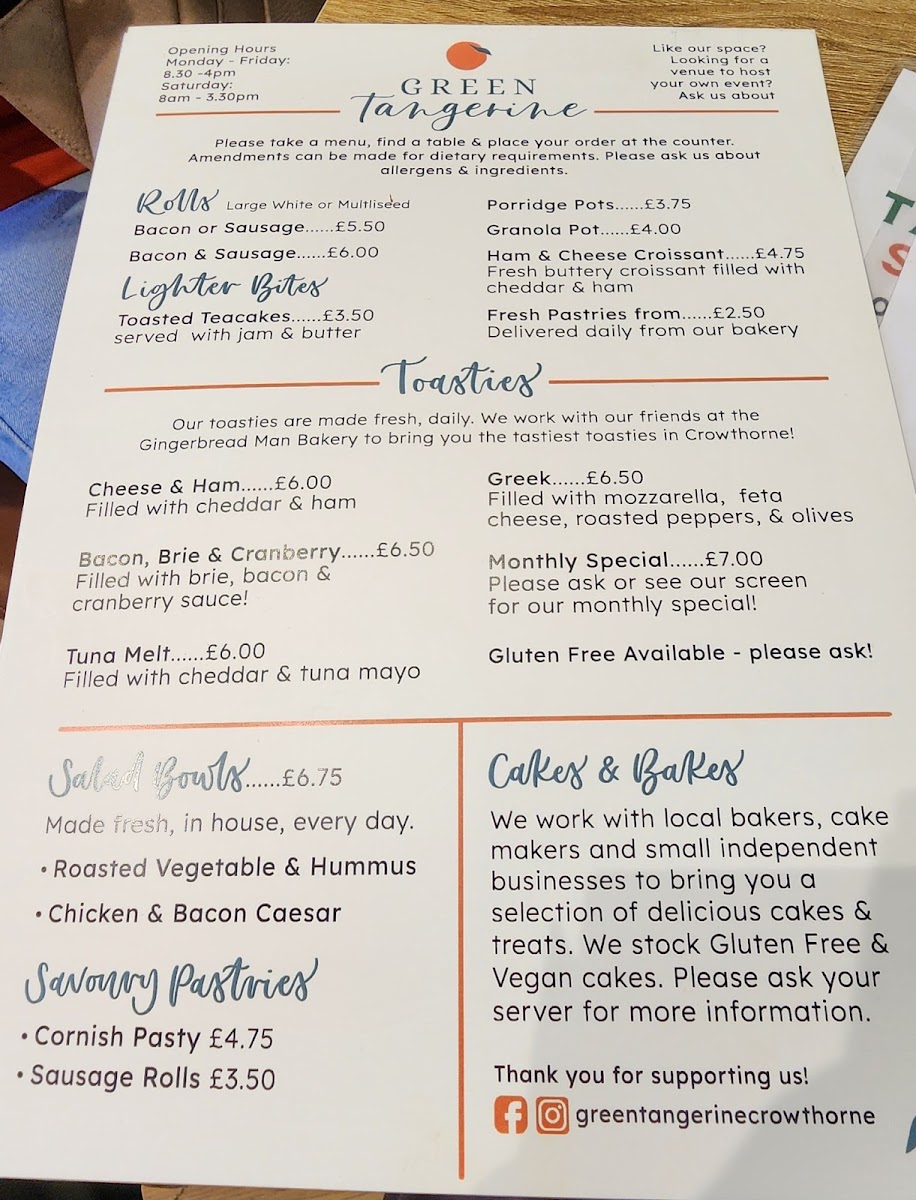 Opening Hours
Monday - Friday:
8.30 -4pm
Saturday:
8am - 3.30pm
GREEN
Tangerine
Like our space?
Looking for a
venue to host
your own event?
Ask us about
Please take a menu, find a table & place your order at the counter.
Amendments can be made for dietary requirements. Please ask us about
allergens & ingredients.
Rolls Large White or Multliseed
Bacon or Sausage......£5.50
Bacon & Sausage......£6.00
Lighter Bites
Toasted Teacakes......£3.50
served with jam & butter
Porridge Pots......£3.75
Granola Pot......£4.00
Ham & Cheese Croissant......£4.75
Fresh buttery croissant filled with
cheddar & ham
Fresh Pastries from......£2.50
Delivered daily from our bakery
Toasties
Our toasties are made fresh, daily. We work with our friends at the
Gingerbread Man Bakery to bring you the tastiest toasties in Crowthorne!
Cheese & Ham......£6.00
Filled with cheddar & ham
Bacon, Brie & Cranberry......£6.50
Filled with brie, bacon &
cranberry sauce!
Tuna Melt......£6.00
Filled with cheddar & tuna mayo
Greek......£6.50
Filled with mozzarella, feta
cheese, roasted peppers, & olives
Monthly Special......£7.00
Please ask or see our screen
for our monthly special!
Gluten Free Available - please ask!
Salad Bowls......£6.75
Made fresh, in house, every day.
• Roasted Vegetable & Hummus
• Chicken & Bacon Caesar
Savoury Pastries
• Cornish Pasty £4.75
• Sausage Rolls £3.50
Cakes & Bakes
We work with local bakers, cake
makers and small independent
businesses to bring you a
selection of delicious cakes &
treats. We stock Gluten Free &
Vegan cakes. Please ask your
server for more information.
Thank you for supporting us!
greentangerinecrowthorne